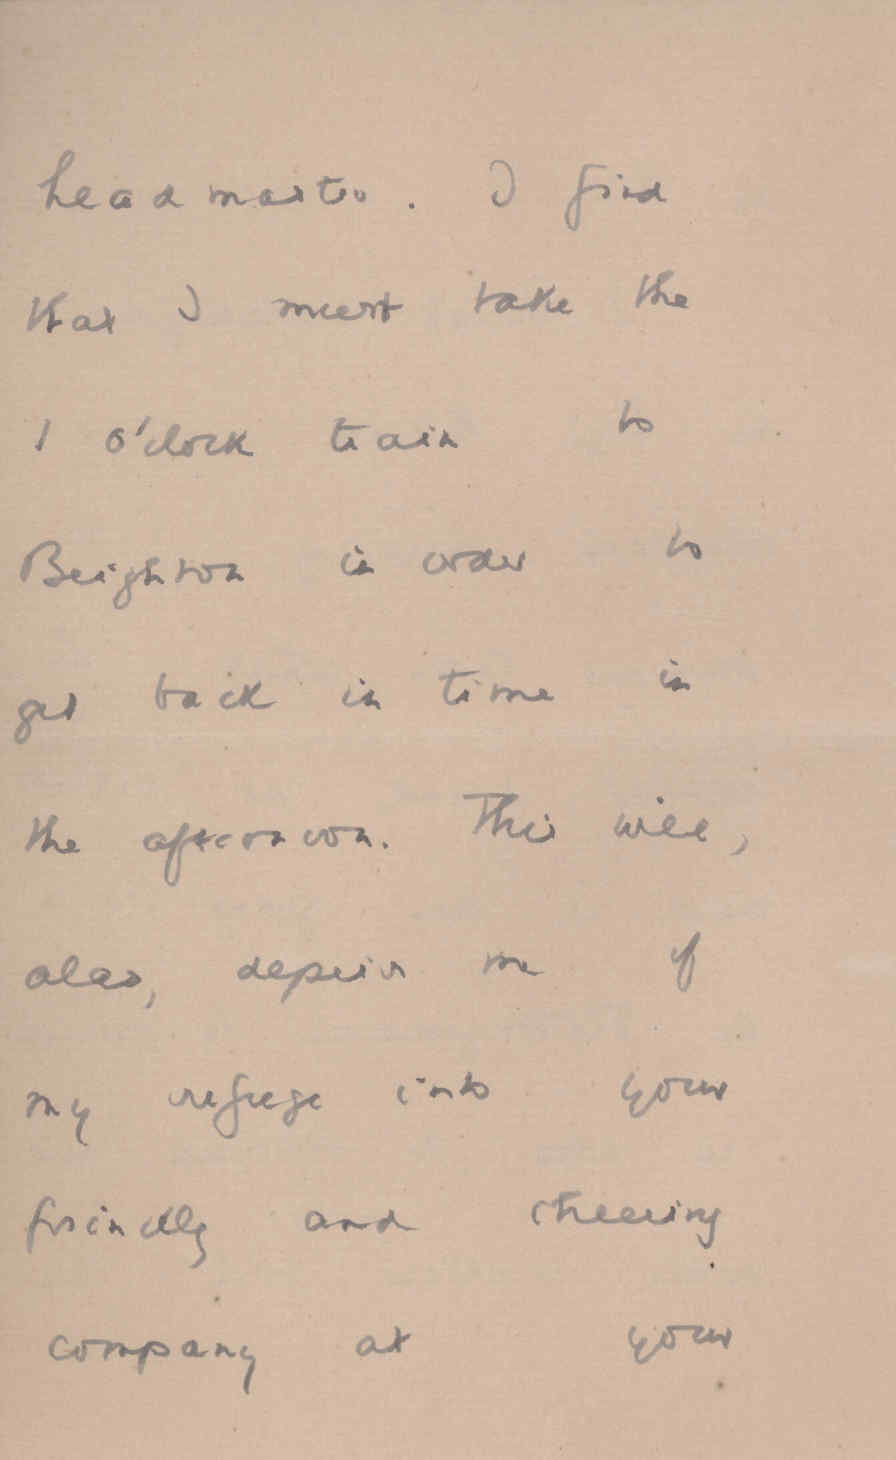 headmaster. I find
that I must take the
1 o'clock train to
Brighton in order to
get back in time in
the afternoon. This will,
alas, deprive me of
my refuge into your
friendly and cheering
company at your